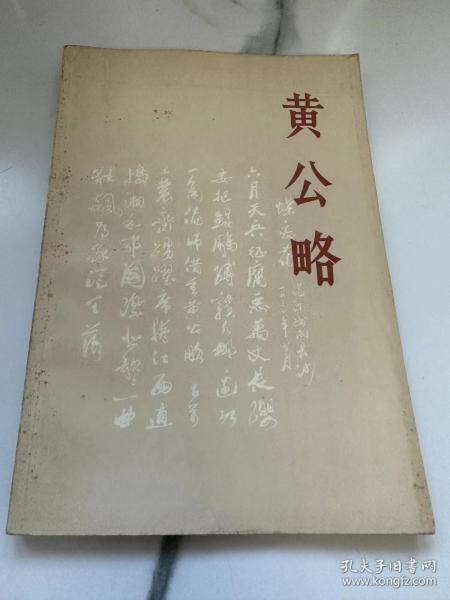 黄公略
蝶恋花
从汀州向长沙
一九三〇年七月
六月天兵征腐恶万丈长缨
要把鲲鹏缚赣水那边红
一角偏师借重黄公略百万
工农齐踊跃席卷江西直
捣湘和鄂国际悲歌一曲
狂飙为我从天落
孔夫子旧书网
www.kongfz.com